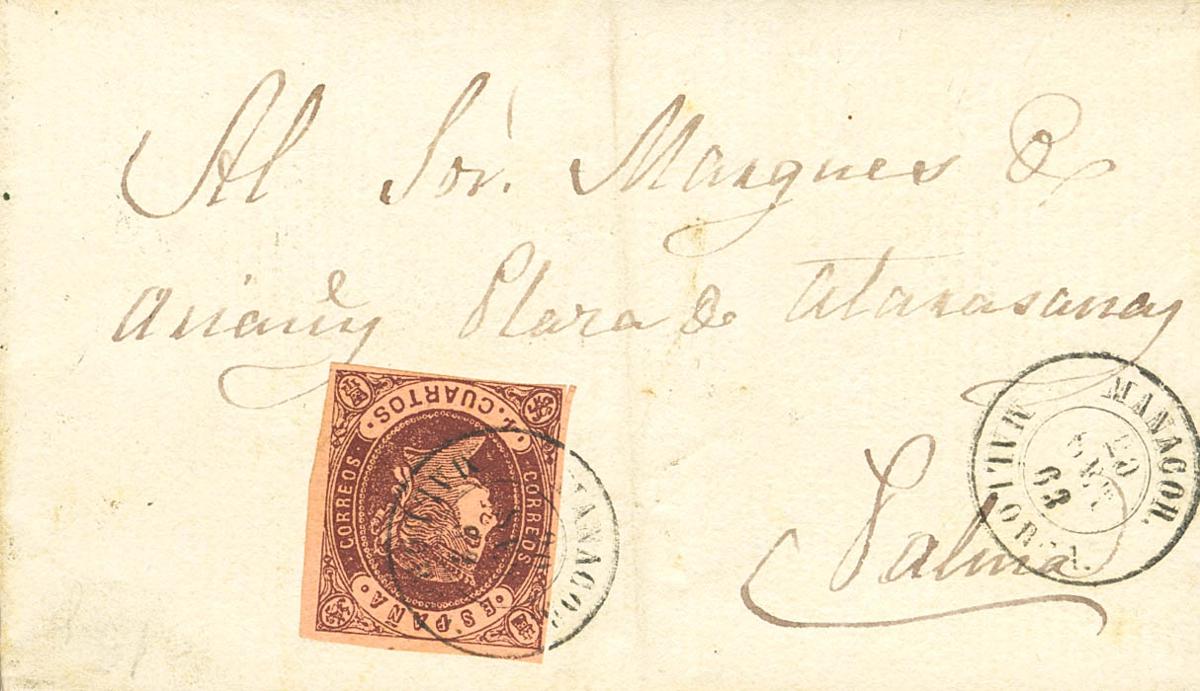 Al Sör. Marques de
Ariañy Plaza de Atarasanas
Palma
4. CUARTOS.
CORREOS
CORREOS
ESPAÑA
MANACOR
MANACOR.
MALLORCA.
63